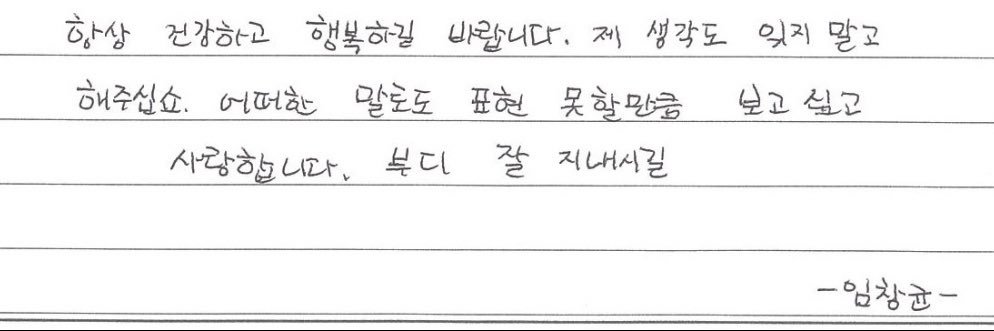 항상 건강하고 행복하길 바랍니다. 제 생각도 잊지 말고
해주십쇼. 어떠한 말로도 표현 못할만큼 보고 싶고
사랑합니다. 부디 잘 지내시길
-임창균-